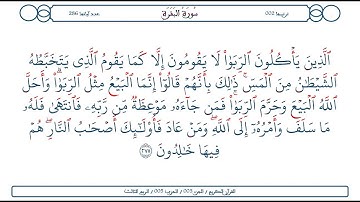 ترتيبها 002 سُورَةُ البَقَرَةِ عدد آياتها 286
ٱلَّذِينَ يَأۡكُلُونَ ٱلرِّبَوٰاْ لَا يَقُومُونَ إِلَّا كَمَا يَقُومُ ٱلَّذِي يَتَخَبَّطُهُ
ٱلشَّيۡطَٰنُ مِنَ ٱلۡمَسِّۚ ذَٰلِكَ بِأَنَّهُمۡ قَالُوٓاْ إِنَّمَا ٱلۡبَيۡعُ مِثۡلُ ٱلرِّبَوٰاْۗ وَأَحَلَّ
ٱللَّهُ ٱلۡبَيۡعَ وَحَرَّمَ ٱلرِّبَوٰاْۚ فَمَن جَآءَهُۥ مَوۡعِظَةٞ مِّن رَّبِّهِۦ فَٱنتَهَىٰ فَلَهُۥ
مَا سَلَفَ وَأَمۡرُهُۥٓ إِلَى ٱللَّهِۖ وَمَنۡ عَادَ فَأُوْلَٰٓئِكَ أَصۡحَٰبُ ٱلنَّارِۖ هُمۡ
فِيهَا خَٰلِدُونَ ٢٧٥
القرآن الكريم / الجزء 003 / الحزب 005 / الربع الثالث